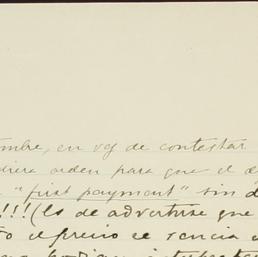 mbre, en vez de contestar
diera orden para que el d
"first payment" sin d
!!! (Es de advertirse que
to el precio se